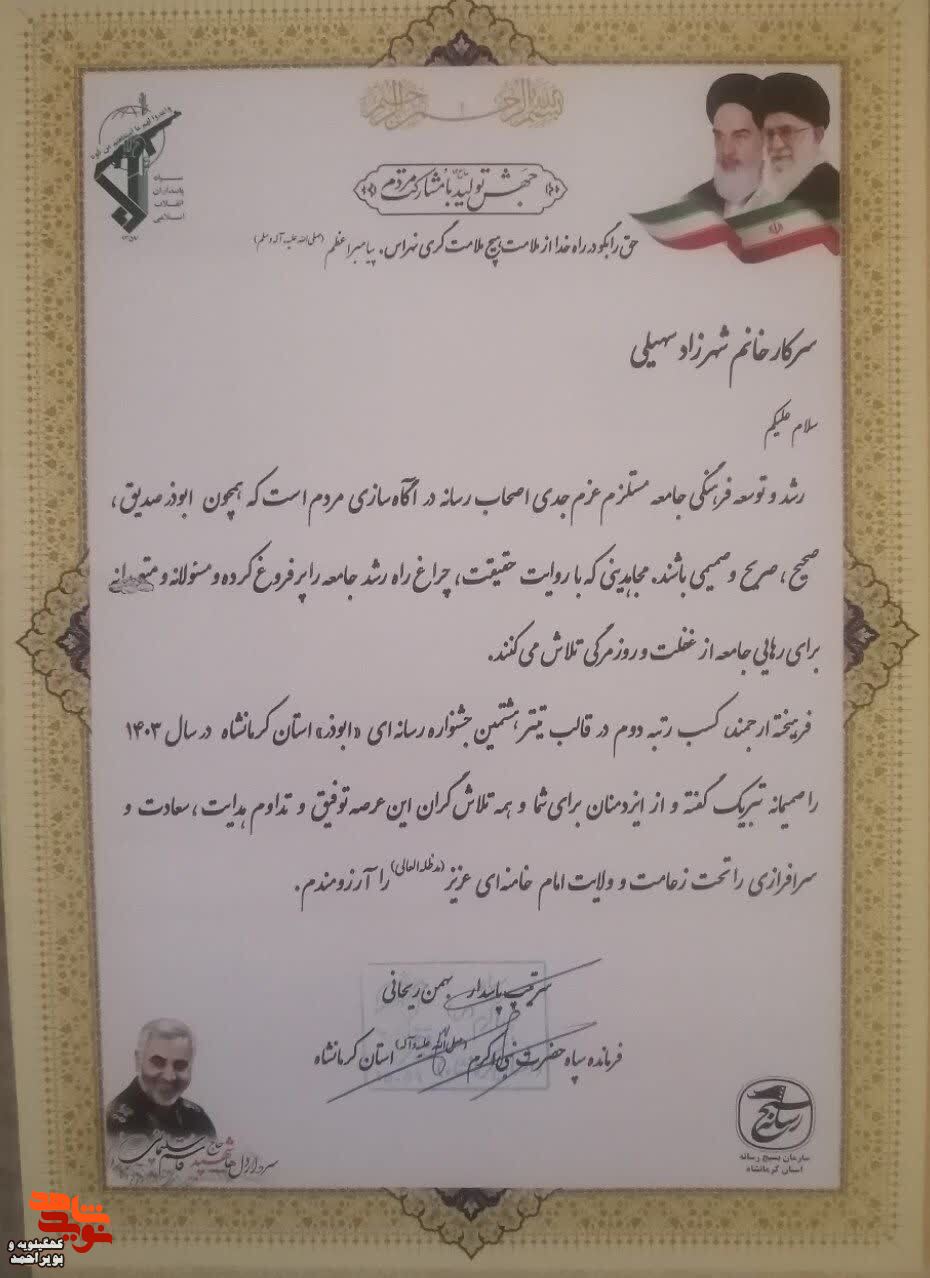 بسم الله الرحمن الرحیم
سپاه
پاسداران
انقلاب
اسلامی
۱۳۵۷
جهش تولید با مشارکت مردم
حق را بگو در راه خدا از ملامت هیچ ملامت گری نهراس. پیامبر اعظم (صلی الله علیه وآله وسلم)
سرکار خانم شهرزاد سهیلی
سلام علیکم
رشد و توسعه فرهنگی جامعه مستلزم عزم جدی اصحاب رسانه در آگاه سازی مردم است که همچون ابوذر صدیق،
صحیح، صریح و صمیمی باشند. مجاهدینی که با روایت حقیقت، چراغ راه رشد جامعه را پر فروغ کرده و مسئولانه و متعهدانه
برای رهایی جامعه از غفلت و روزمرگی تلاش می کنند.
فرهیخته ارجمند، کسب رتبه دوم در قالب تیتر هشتمین جشنواره رسانه ای «ابوذر» استان کرمانشاه در سال ۱۴۰۳
را صمیمانه تبریک گفته و از ایزدمنان برای شما و همه تلاش گران این عرصه توفیق و تداوم هدایت، سعادت و
سرافرازی را تحت زعامت و ولایت امام خامنه ای عزیز (مدظله العالی) را آرزومندم.
سرتیپ پاسدار بهمن ریحانی
فرمانده سپاه حضرت نبی اکرم (صلی الله علیه وآله) استان کرمانشاه
سردار دل ها شهید حاج قاسم سلیمانی
بسیج رسانه
سازمان بسیج رسانه
استان کرمانشاه
نوید شاهد
کهگیلویه و
بویراحمد